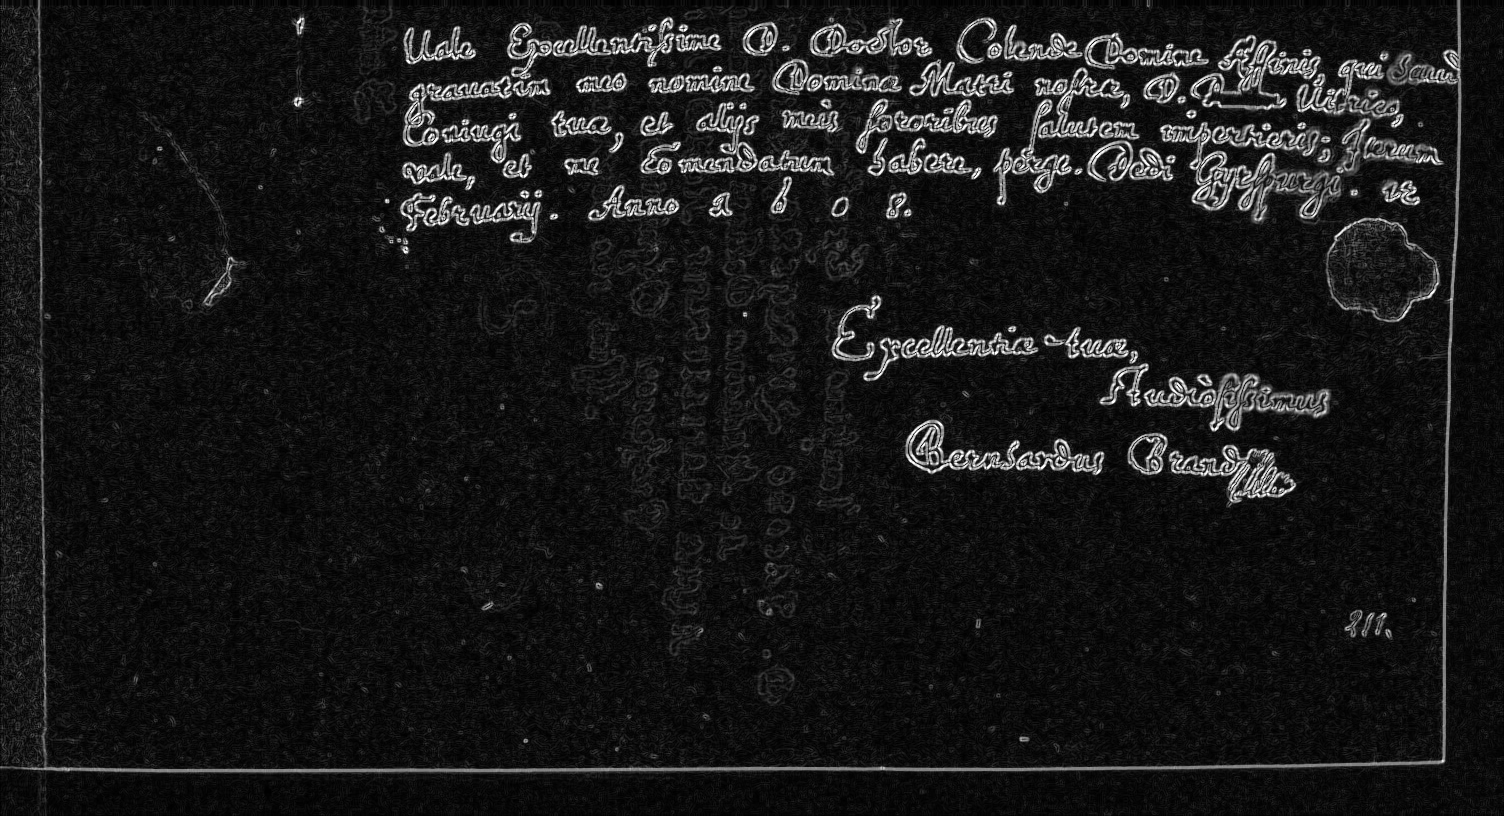 Vale Excellentissime D. Doctor Colende Domine Affinis, qui haud
grauatim meo nomine Dominæ Matri nostræ, D. Vitrico,
Coniugi tuæ, et alijs meis sororibus salutem impertieris; Iterum
vale, et me Comendatum habere, perge. Dedi
Februarij. Anno 1608.
Excellentiæ tuæ,
Studiosissimus
Bernhardus Brand
211.